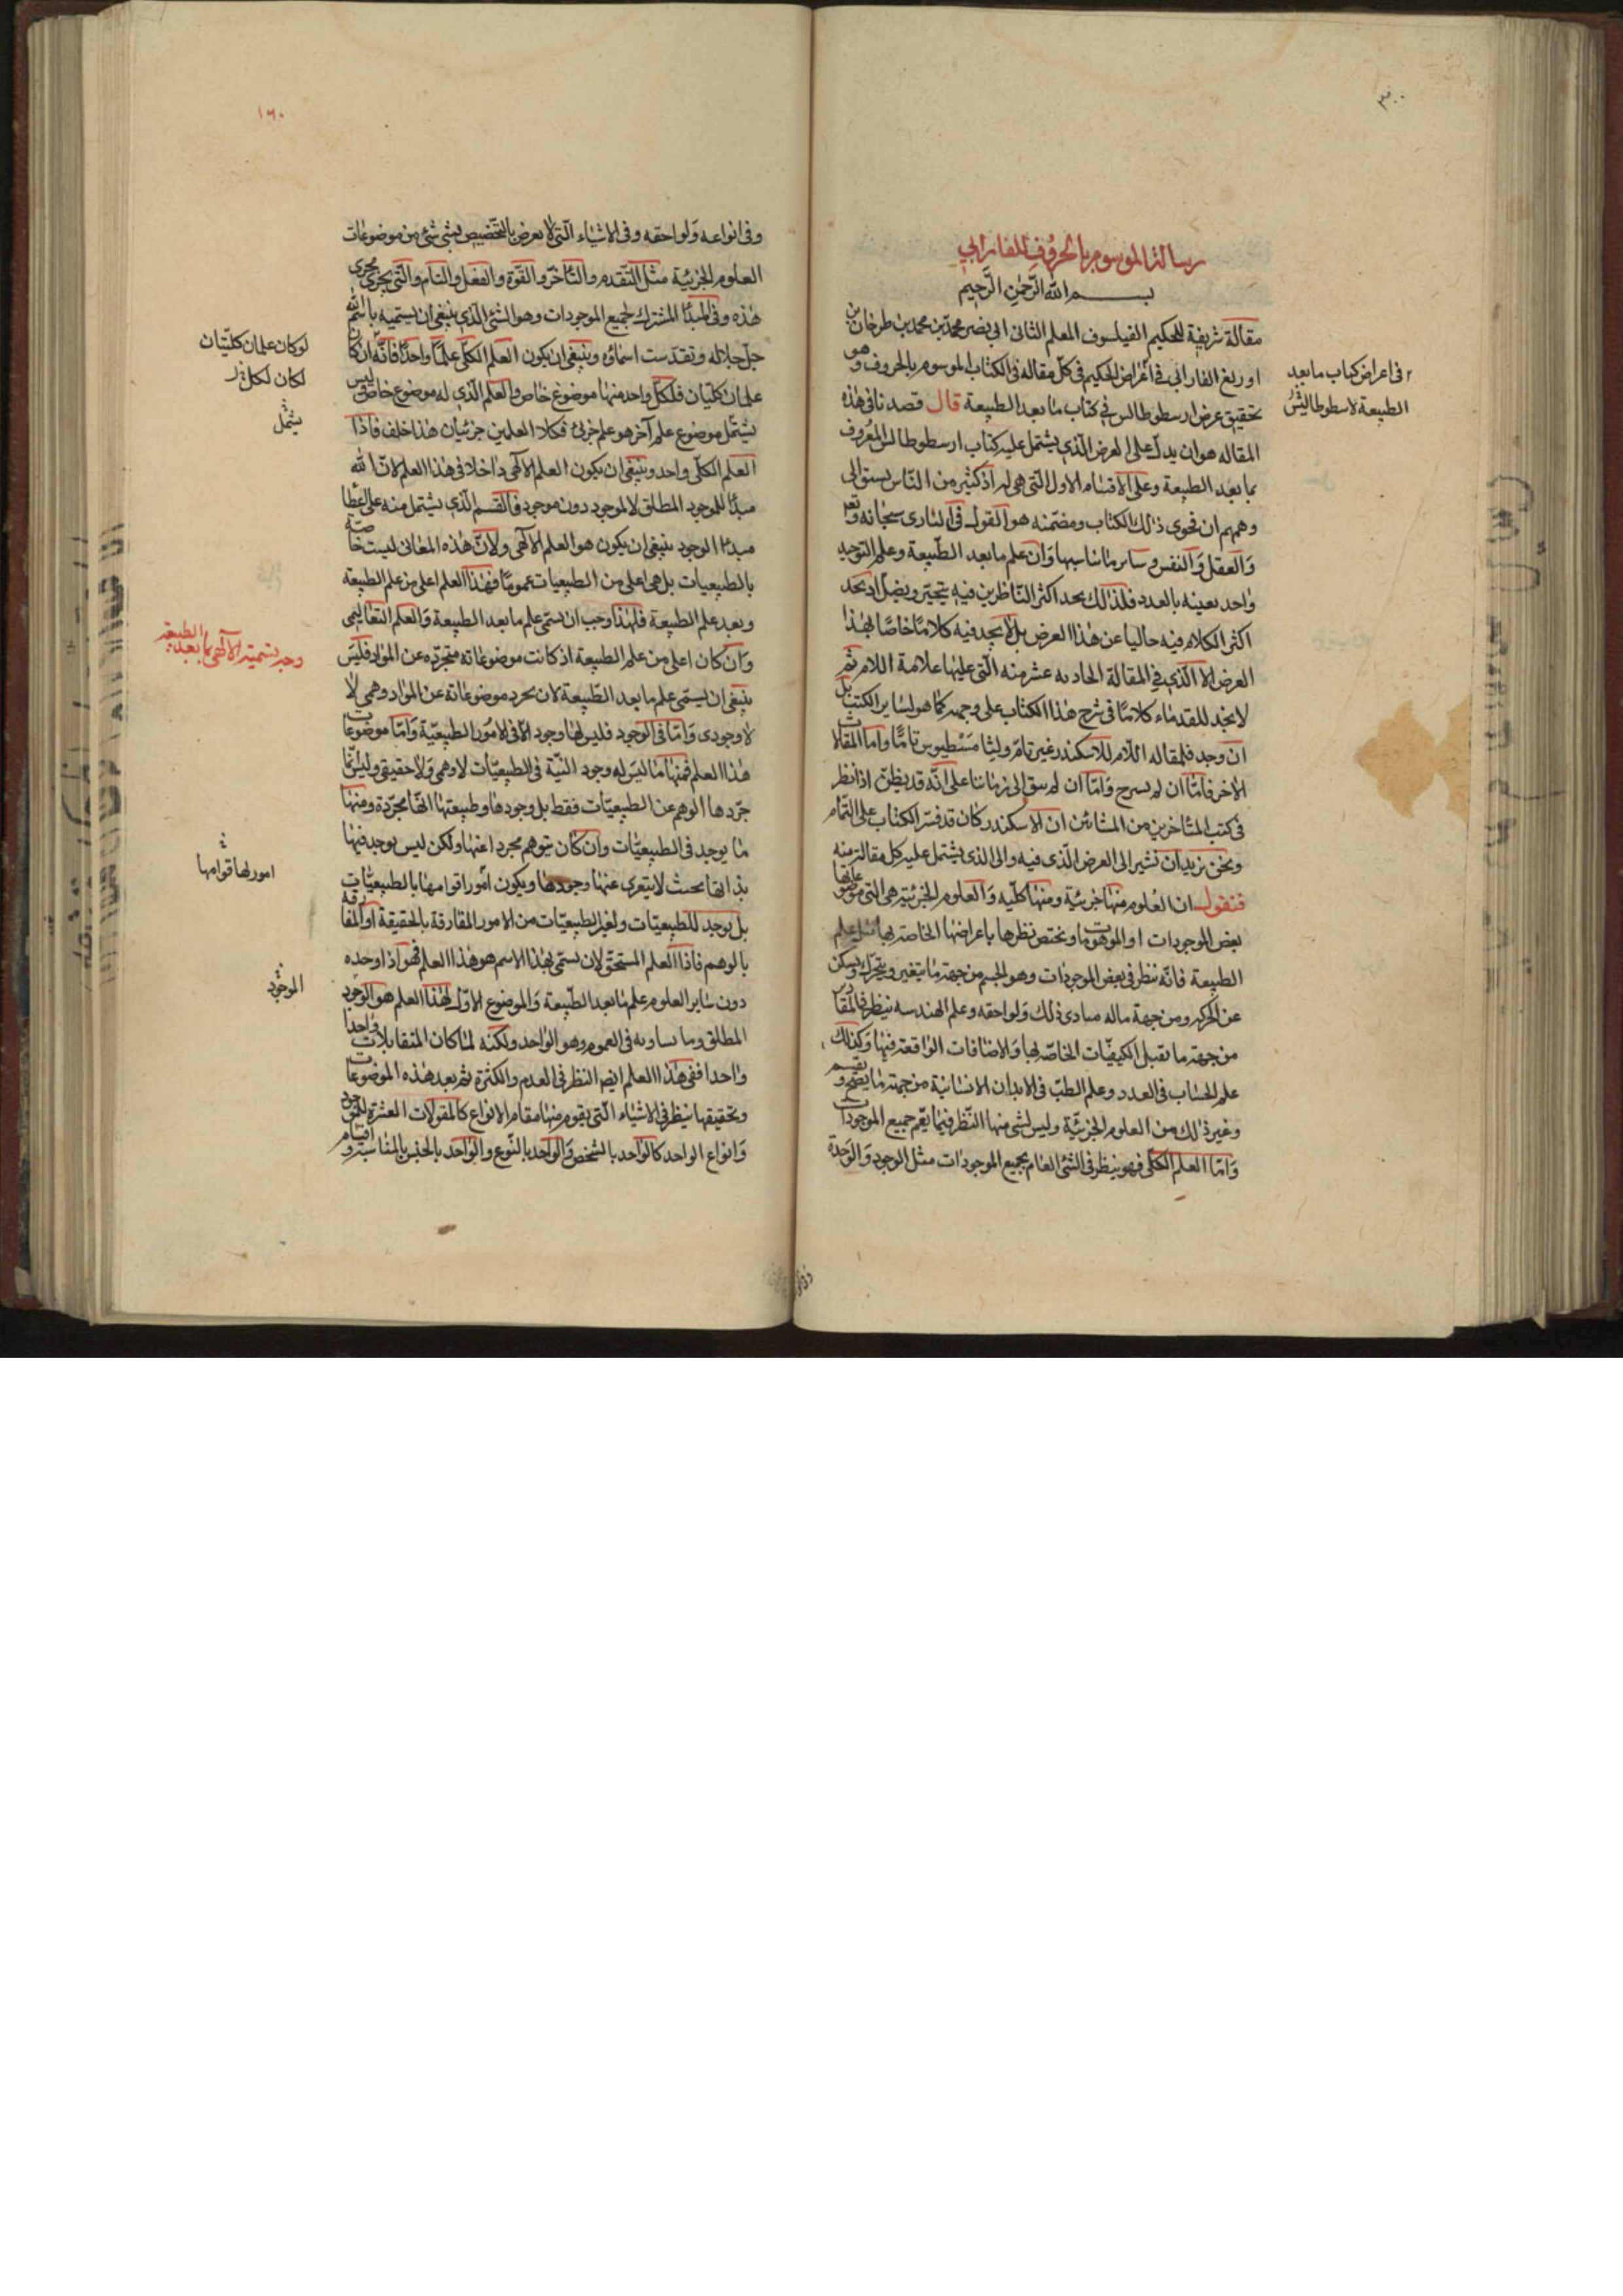 ٣٠٠
رسالة الموسوم بالحروف للفارابي
بسم الله الرحمن الرحيم
مقالة شريفة للحكيم الفيلسوف المعلم الثانى ابى نصر محمد بن محمد بن طرخان بن
اوزيغ الفارابى فى اغراض الحكيم فى كل مقاله فى الكتاب الموسوم بالحروف وهو
تحقيق غرض ارسطوطالس فى كتاب ما بعد الطبيعة قال قصدنا فى هذه
المقاله هو ان يدل على الغرض الذى يشتمل عليه كتاب ارسطوطالس المعروف
بما بعد الطبيعة وعلى الاقسام الاول التى هى له اذ كثير من الناس يسبق الى
وهمهم ان فحوى ذلك الكتاب ومضمنه هو القول فى البارى سبحانه وتعر
والعقل والنفس وساير ما يناسبها وان علم ما بعد الطبيعة وعلم التوحيد
واحد بعينه بالعدد فلذلك يحد اكثر الناظرين فيه يتحير ويضل اذ يحد
اكثر الكلام فيه خاليا عن هذا الغرض بل لا يجد فيه كلاما خاصا بهذا
الغرض الا الذى فى المقالة الحاديه عشر منه التى عليها علامة اللام ثم
لا يجد للقدماء كلاما فى شرح هذا الكتاب على وجهه كما هو لساير الكتب بل
ان وجد فلمقاله اللام للاسكندر غير تام ولثامسطيوس تاما واما المقالات
الاخر فاما ان لم يشرح واما ان لم يبق الى زماننا على انه قد يظن اذا نظر
فى كتب المتاخرين من المشائين ان الاسكندر كان قد فسر الكتاب على التمام
ونحن نريد ان نشير الى الغرض الذى فيه والى الذى يشتمل عليه كل مقالة منه
فنقول ان العلوم منها جزئية ومنها كليه والعلوم الجزئية هى التى موضوعاتها
بعض الموجودات او الموهومات ويختص نظرها باعراضها الخاصه بها مثل علم
الطبيعة فانه ينظر فى بعض الموجودات وهو الجسم من جهة ما يتغير ويتحرك ويسكن
عن الحركه ومن جهة ماله مبادى ذلك ولواحقه وعلم الهندسه ينظر فى المقادير
من جهة ما تقبل الكيفيات الخاصه بها والاضافات الواقعة فيها وكذلك
علم الحساب فى العدد وعلم الطب فى الابدان الانسانية من جهة ما يصح ويسقم
وغير ذلك من العلوم الجزئية وليس لشى منها النظر فيما يعم جميع الموجودات
واما العلم الكلى فهو ينظر فى الشئ العام بجميع الموجودات مثل الوجود والوحدة
فى اعراض كتاب ما بعد
الطبيعة لارسطوطاليس
١٦٠
وفى انواعه ولواحقه وفى الاشياء التى لا يعرض بالتخصيص لشى شئ من موضوعات
العلوم الجزئية مثل التقدم والتاخر والقوة والفعل والتام والتى يجرى مجرى
هذه وفى المبدا المشترك لجميع الموجودات وهو الشئ الذى ينبغى ان يسميه باسم الله
جل جلاله وتقدست اسماؤه وينبغى ان يكون العلم الكلى علما واحدا فانه ان كان
علمان كليان فلكل واحد منهما موضوع خاص والعلم الذى له موضوع خاص وليس
يشتمل موضوع علم آخر هو علم جزئى فكلا العلمين جزئيان هذا خلف فاذا
العلم الكلى واحد وينبغى ان يكون العلم الالهى داخلا فى هذا العلم لان الله
مبدا للموجود المطلق لا لموجود دون موجود فالقسم الذى يشتمل منه على اعطا
مبدا الوجود ينبغى ان يكون هو العلم الالهى ولان هذه المعانى ليست خاصة
بالطبيعيات بل هى اعلى من الطبيعيات عموما فهذا العلم اعلى من علم الطبيعة
وبعد علم الطبيعة فلهذا وجب ان يسمى علم ما بعد الطبيعة والعلم التعاليمى
وان كان اعلى من علم الطبيعة اذ كانت موضوعاته متجرده عن المواد فليس
ينبغى ان يسمى علم ما بعد الطبيعة لان تجرد موضوعاته عن المواد وهمى لا
لا وجودى واما فى الوجود فليس لها وجود الا فى الامور الطبيعية واما موضوعات
هذا العلم فمنها ما ليس له وجود البتة فى الطبيعيات لا وهمى ولا حقيقى وليس انما
جردها الوهم عن الطبيعيات فقط بل وجودها وطبيعتها انها مجردة ومنها
ما يوجد فى الطبيعيات وان كان يتوهم مجردا عنها ولكن ليس يوجد فيها
بذاتها بحيث لا يتعرى عنها وجودها ويكون امورا قوامها بالطبيعيات
بل يوجد للطبيعيات ولغير الطبيعيات من الامور المفارقة بالحقيقة او المفارقه
بالوهم فاذا العلم المستحق لان يسمى بهذا الاسم هو هذا العلم فهو اذا وحده
دون ساير العلوم علم ما بعد الطبيعة والموضوع الاول لهذا العلم هو الوجود
المطلق وما يساويه فى العموم وهو الواحد ولكنه لما كان المتقابلات واحدا
واحدا ففى هذا العلم ايضا النظر فى العدم والكثرة ثم بعد هذه الموضوعات
وتحقيقها ينظر فى الاشياء التى يقوم منها مقام الانواع كالمقولات العشرة للموجود
وانواع الواحد كالواحد بالشخص والواحد بالنوع والواحد بالجنس بالمناسبة واقسام
لو كان علمان كليان
لكان لكل
يشمل
وجه تسمية الآلهى بما بعد الطبيعة
امور لها قوامها
الموجود